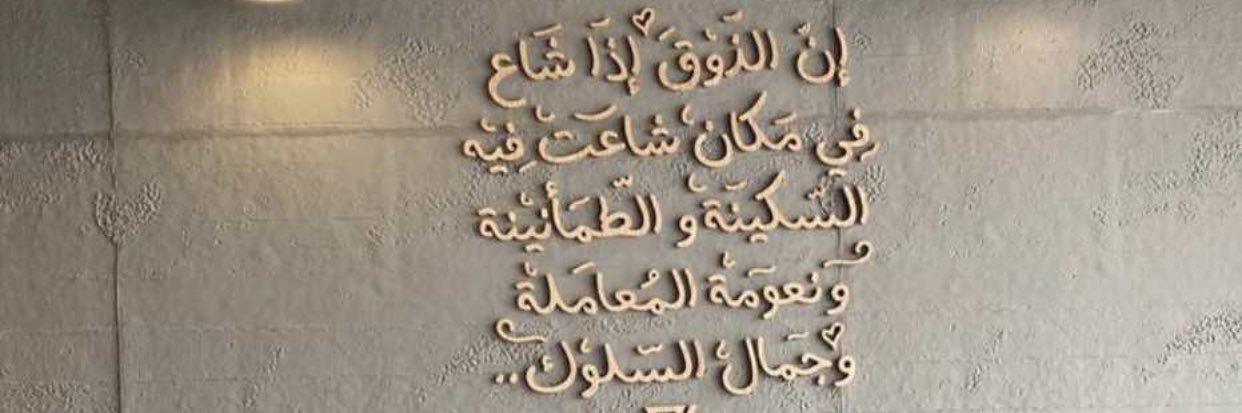 إنّ الذَّوْقَ إذَا شَاع
فِي مَكان شاعَت فِيه
السَّكينَة و الطّمَأنينة
وَنعومَة المُعامَلة
وَجَمال السّلوْك..